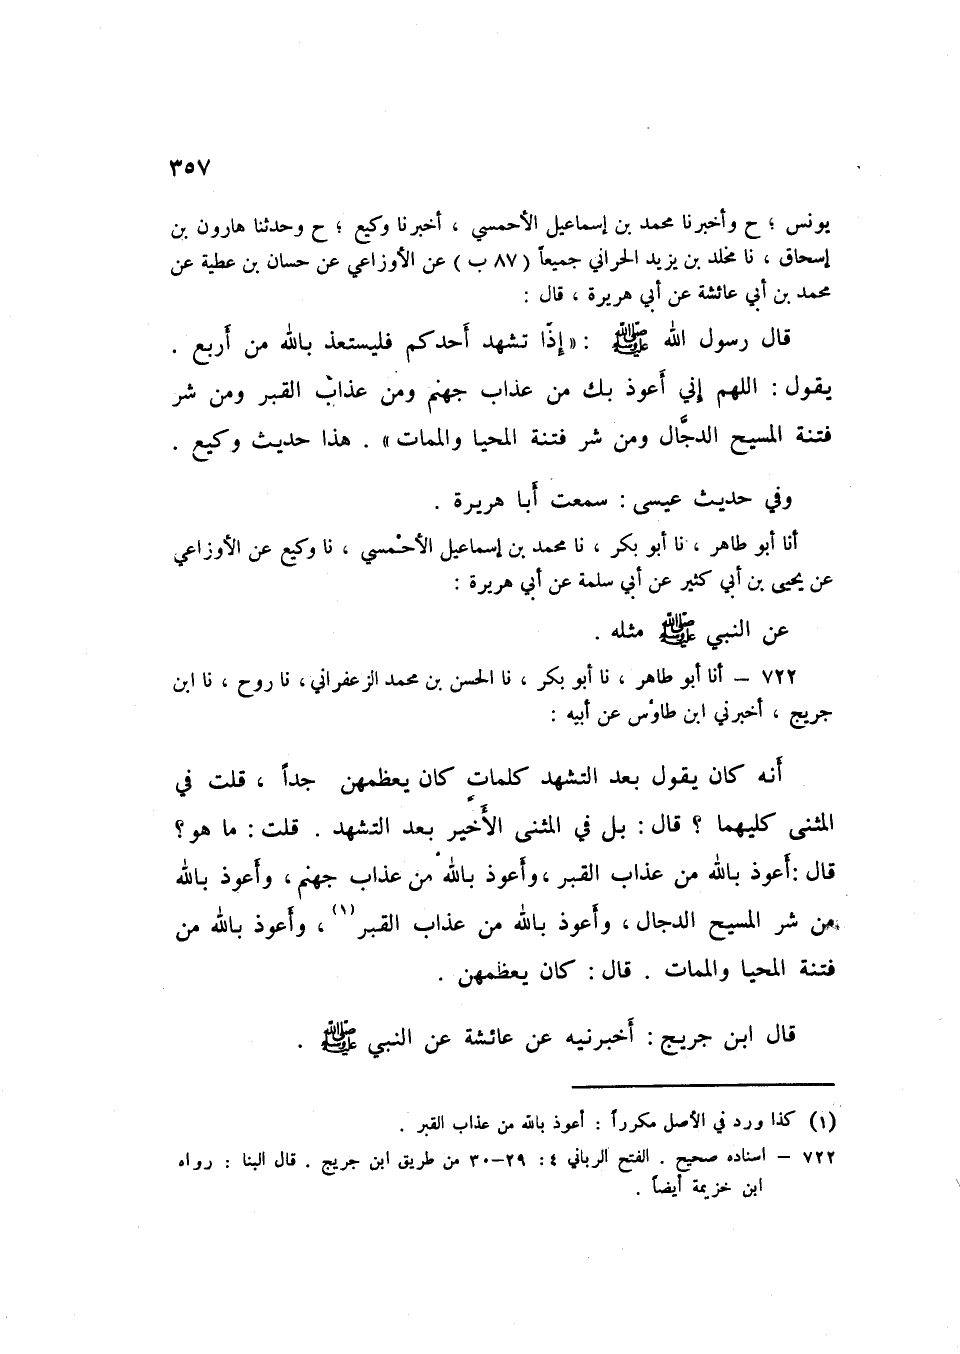 ٣٥٧
يونس ؛ ح وأخبرنا محمد بن إسماعيل الأحمسي ، أخبرنا وكيع ؛ ح وحدثنا هارون بن
إسحاق ، نا مخلد بن يزيد الحراني جميعاً ( ٨٧ ب ) عن الأوزاعي عن حسان بن عطية عن
محمد بن أبي عائشة عن أبي هريرة ، قال :
قال رسول الله ﷺ : « إذا تشهد أحدكم فليستعذ بالله من أربع .
يقول : اللهم إني أعوذ بك من عذاب جهنم ومن عذاب القبر ومن شر
فتنة المسيح الدجَّال ومن شر فتنة المحيا والممات » . هذا حديث وكيع .
وفي حديث عيسى : سمعت أبا هريرة .
أنا أبو طاهر ، نا أبو بكر ، نا محمد بن إسماعيل الأحمسي ، نا وكيع عن الأوزاعي
عن يحيى بن أبي كثير عن أبي سلمة عن أبي هريرة :
عن النبي ﷺ مثله .
٧٢٢ – أنا أبو طاهر ، نا أبو بكر ، نا الحسن بن محمد الزعفراني ، نا روح ، نا ابن
جريج ، أخبرني ابن طاوُس عن أبيه :
أنه كان يقول بعد التشهد كلمات كان يعظمهن جداً ، قلت في
المثنى كليهما ؟ قال : بل في المثنى الأَخير بعد التشهد . قلت : ما هو ؟
قال : أعوذ بالله من عذاب القبر ، وأعوذ بالله من عذاب جهنم ، وأعوذ بالله
من شر المسيح الدجال ، وأعوذ بالله من عذاب القبر (١) ، وأعوذ بالله من
فتنة المحيا والممات . قال : كان يعظمهن .
قال ابن جريج : أخبرنيه عن عائشة عن النبي ﷺ .
(١) كذا ورد في الأصل مكرراً : أعوذ بالله من عذاب القبر .
٧٢٢ – اسناده صحيح . الفتح الرباني ٤ : ٢٩–٣٠ من طريق ابن جريج . قال البنا : رواه
ابن خزيمة أيضاً .